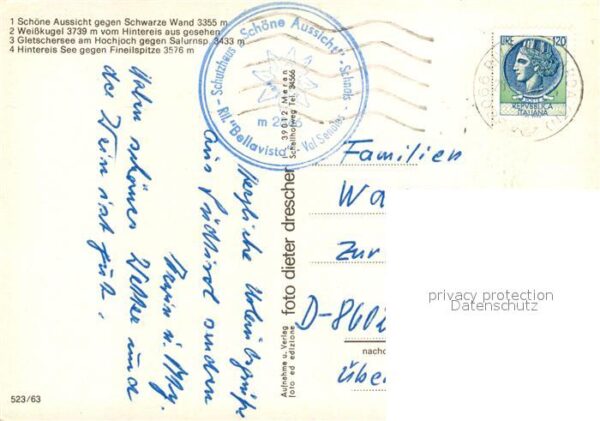 1 Schöne Aussicht gegen Schwarze Wand 3355 m
2 Weißkugel 3739 m vom Hintereis aus gesehen
3 Gletschersee am Hochjoch gegen Salurnsp. 3433 m
4 Hintereis See gegen Fineilspitze 3576 m
Schutzhaus „Schöne Aussicht" - Schnals
Rif. "Bellavista" - Val Senales
LIRE 120
REPVBBLICA
ITALIANA
Herzliche Urlaubsgrüße
aus Südtirol senden
Haben schönes Wetter und
der Wein ist gut.
foto dieter drescher
I - 39012 Meran
Schallhofweg Tel. 34566
Aufnahme u. Verlag
foto ed edizione
Familien
Wa
Zur
D-8602
nacho
übe
privacy protection
Datenschutz
523/63